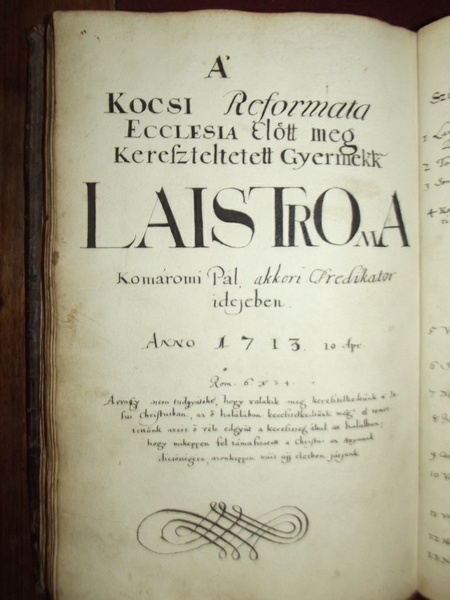 A'
KOCSI Reformata
ECCLESIA Előtt meg
Kereszteltetett Gyermekk
LAISTROMA
Komáromi Pál, akkori Predikátor
idejében.
ANNO 1713. 10 Apr.
Rom. 6. v 3 4.
Avagy nem tudgyátoké, hogy valakik meg kereszteltettünk a Je
sus Christusban, az ő halálában kereszteltettünk meg? el temet
tettünk azért ő vele edgyütt a keresztség által az halálban;
hogy miképpen fel támasztatott a Christus az Atyának
dicsőségére, azonképpen mi is uj életben járjunk.
1
2
3
4
5
6
7
8
9
10
11
12
13